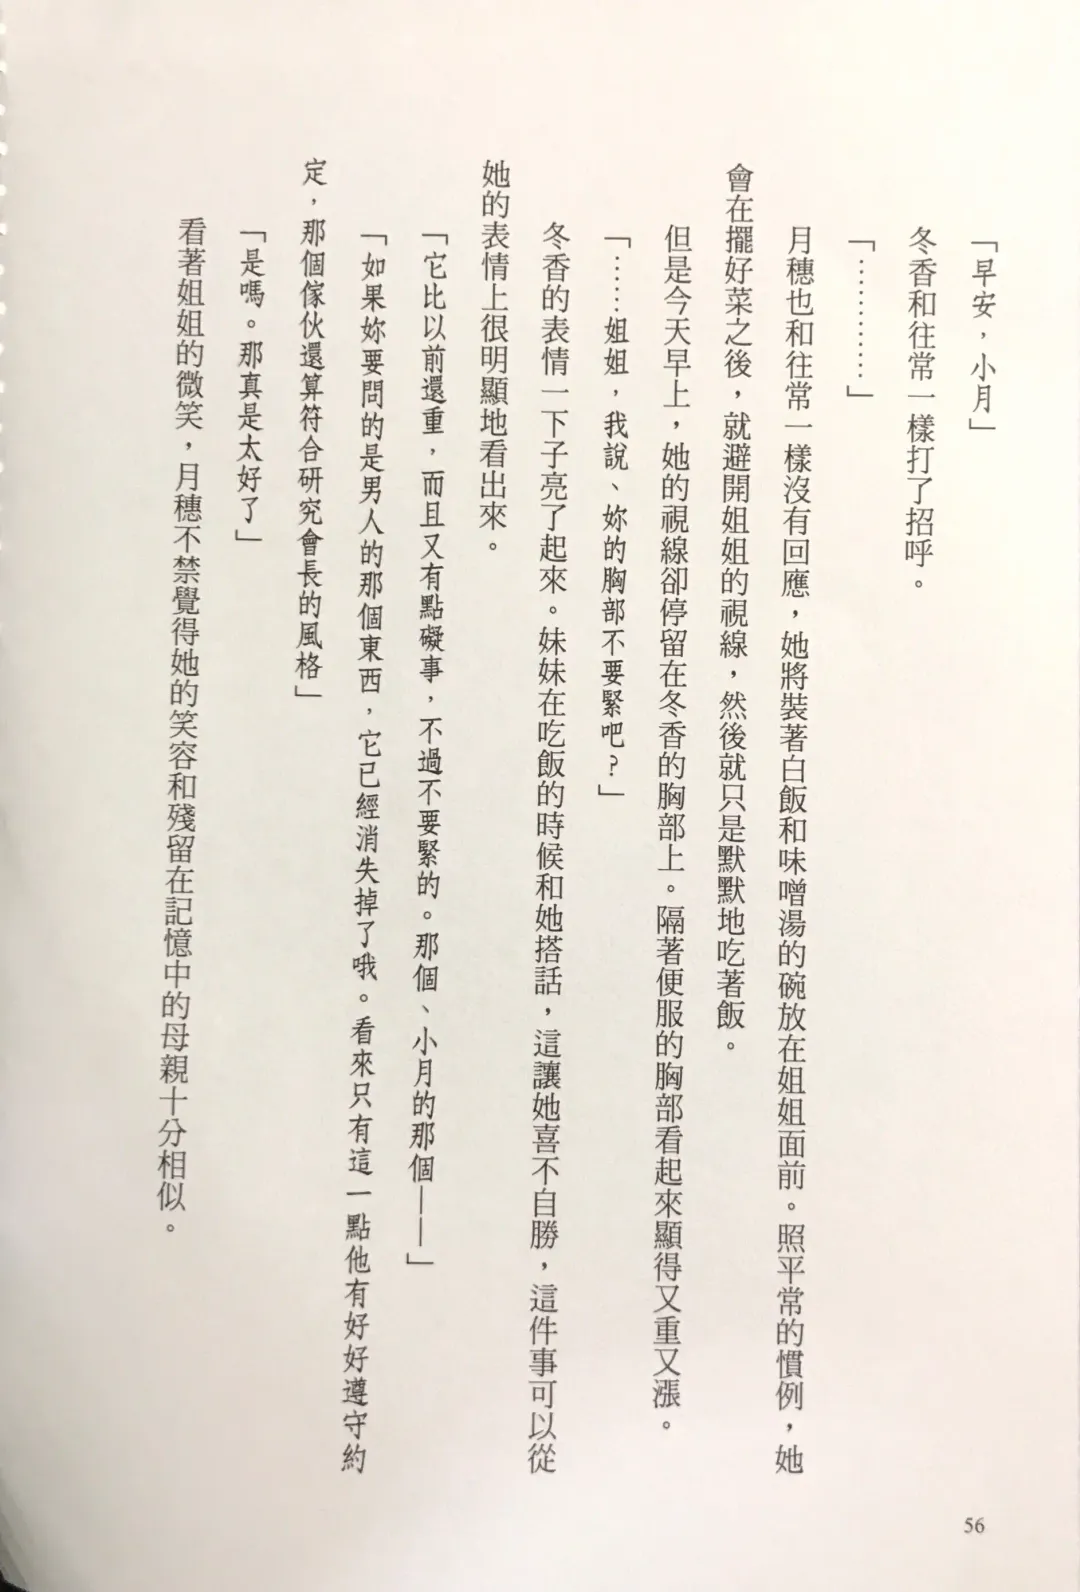 「早安，小月」
冬香和往常一樣打了招呼。
「…………」
月穗也和往常一樣沒有回應，她將裝著白飯和味噌湯的碗放在姐姐面前。照平常的慣例，她
會在擺好菜之後，就避開姐姐的視線，然後就只是默默地吃著飯。
但是今天早上，她的視線卻停留在冬香的胸部上。隔著便服的胸部看起來顯得又重又漲。
「……姐姐，我說、妳的胸部不要緊吧？」
冬香的表情一下子亮了起來。妹妹在吃飯的時候和她搭話，這讓她喜不自勝，這件事可以從
她的表情上很明顯地看出來。
「它比以前還重，而且又有點礙事，不過不要緊的。那個、小月的那個——」
「如果妳要問的是男人的那個東西，它已經消失掉了哦。看來只有這一點他有好好遵守約
定，那個傢伙還算符合研究會長的風格」
「是嗎。那真是太好了」
看著姐姐的微笑，月穗不禁覺得她的笑容和殘留在記憶中的母親十分相似。
56